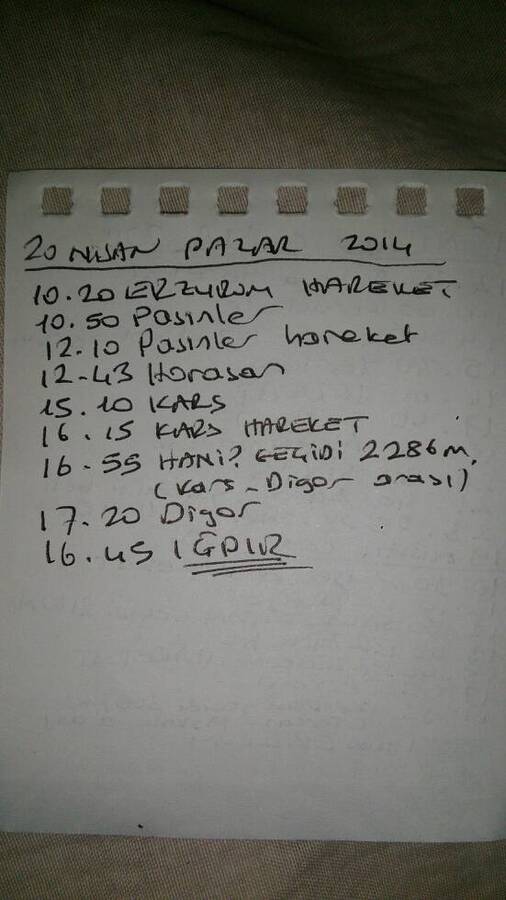 20 NİSAN PAZAR 2014
10.20 ERZURUM HAREKET
10.50 Pasinler
12.10 Pasinler hareket
12-43 Horasan
15.10 KARS
16.15 KARS HAREKET
16-55 HANİ? GEÇİDİ 2286m.
(Kars-Digor arası)
17.20 Digor
16.45 IĞDIR